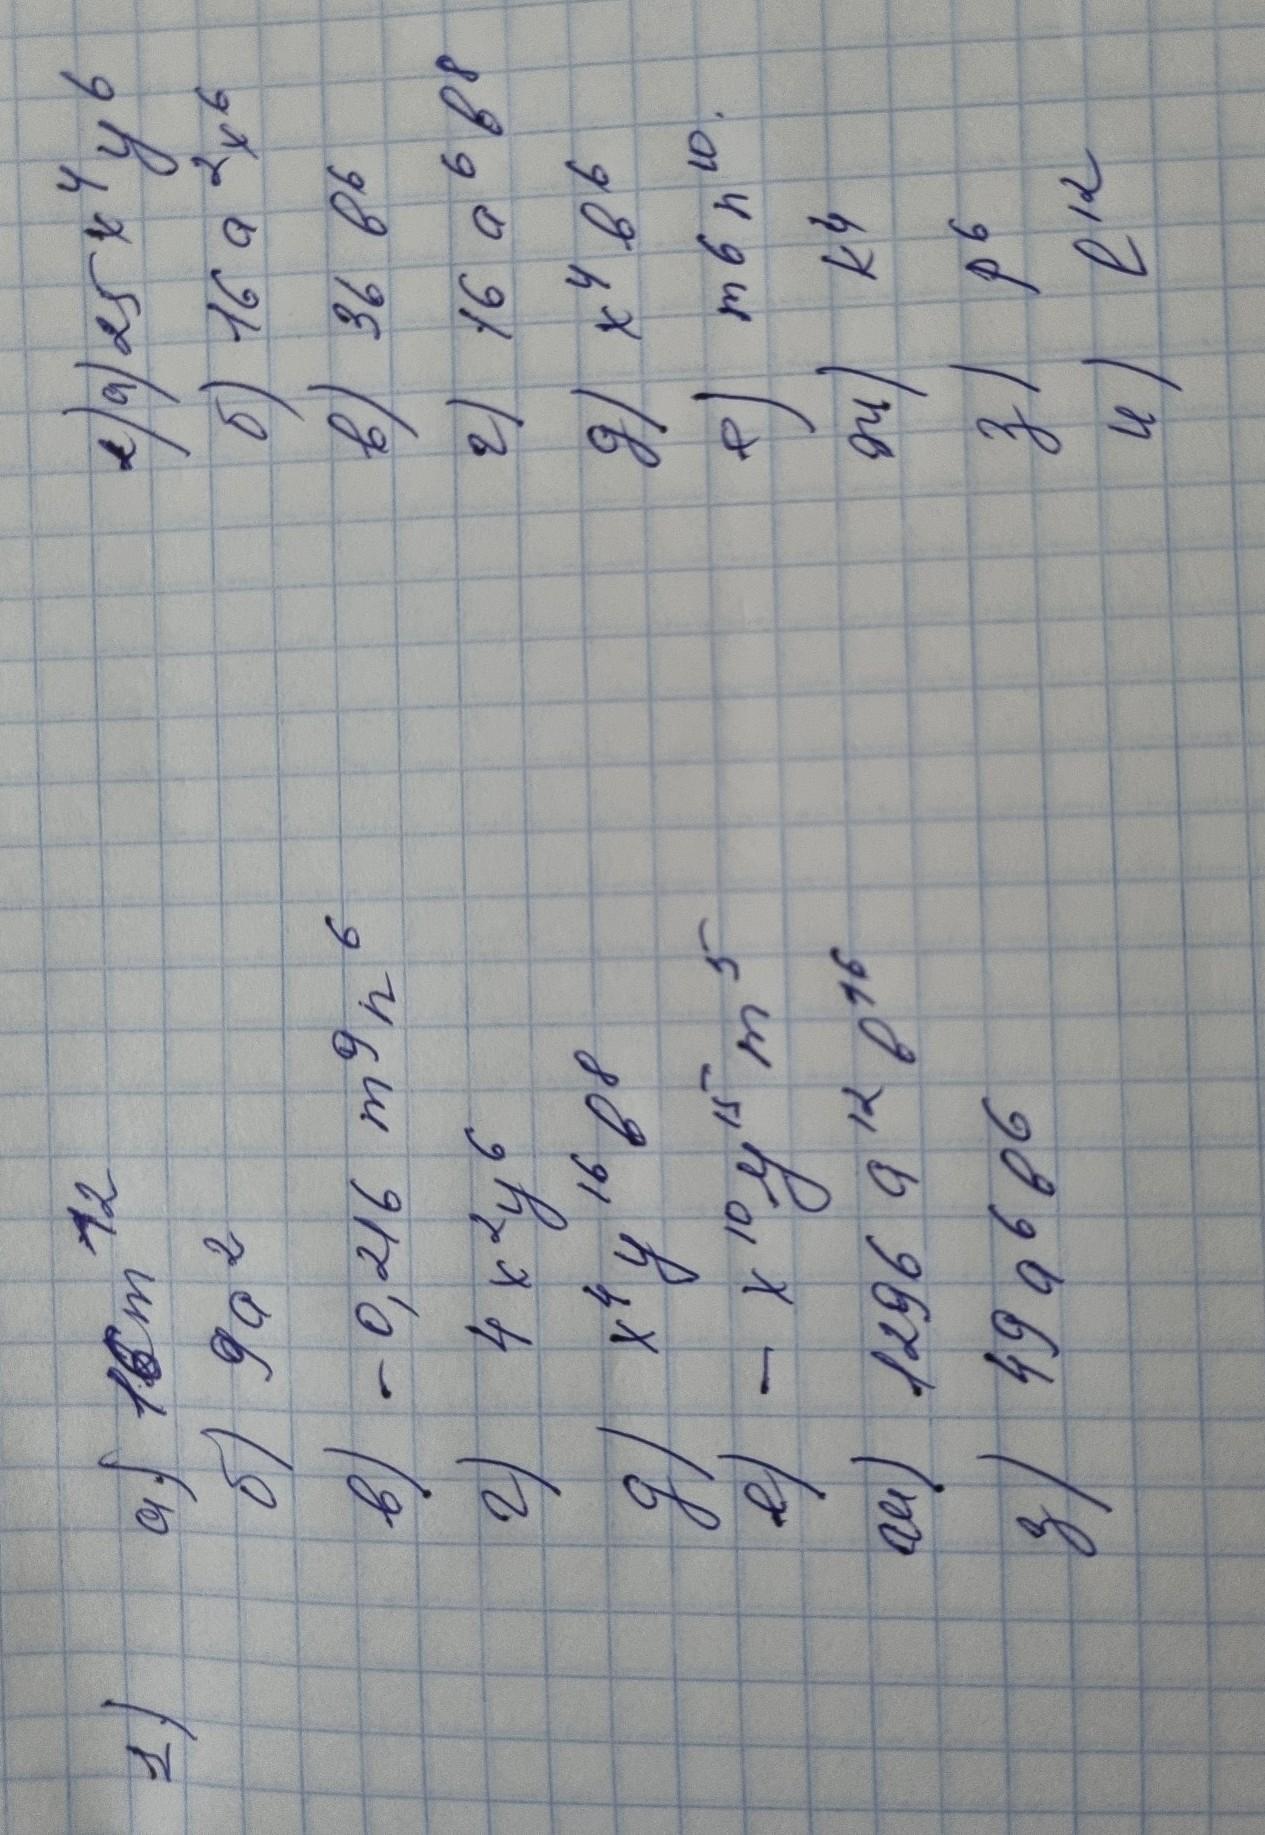 1)
а) 16m¹²
б) 9a²
в) - 0,216 m⁹n⁶
г) 4x²y⁶
д) x⁴y¹⁶b⁸
е) - x¹⁰y¹⁵m⁵
ж) 1296 a¹²b¹⁶
з) 49a⁶b⁶
2) а) 25x⁴y⁶
б) 16a²x⁶
в) 36b⁶
г) 16a⁶b⁸
д) x⁴b⁶
е) m⁶n¹⁰.
ж) k⁴
з) p⁶
и) l¹²